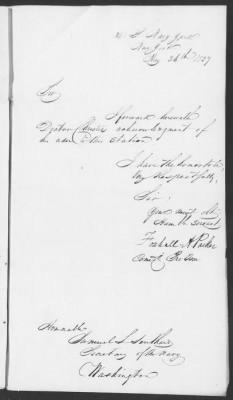 U. S. Navy Yard
May 24th 1827
Sir,
I forward herewith
Doctor acknowledgment of
his orders to this Station
I have the honor to be
very respectfully
Sir
Your most Obt
Humble Servant
Foxhall A Parker
Honorable
Samuel L Southard
Secretary of the Navy
Washington